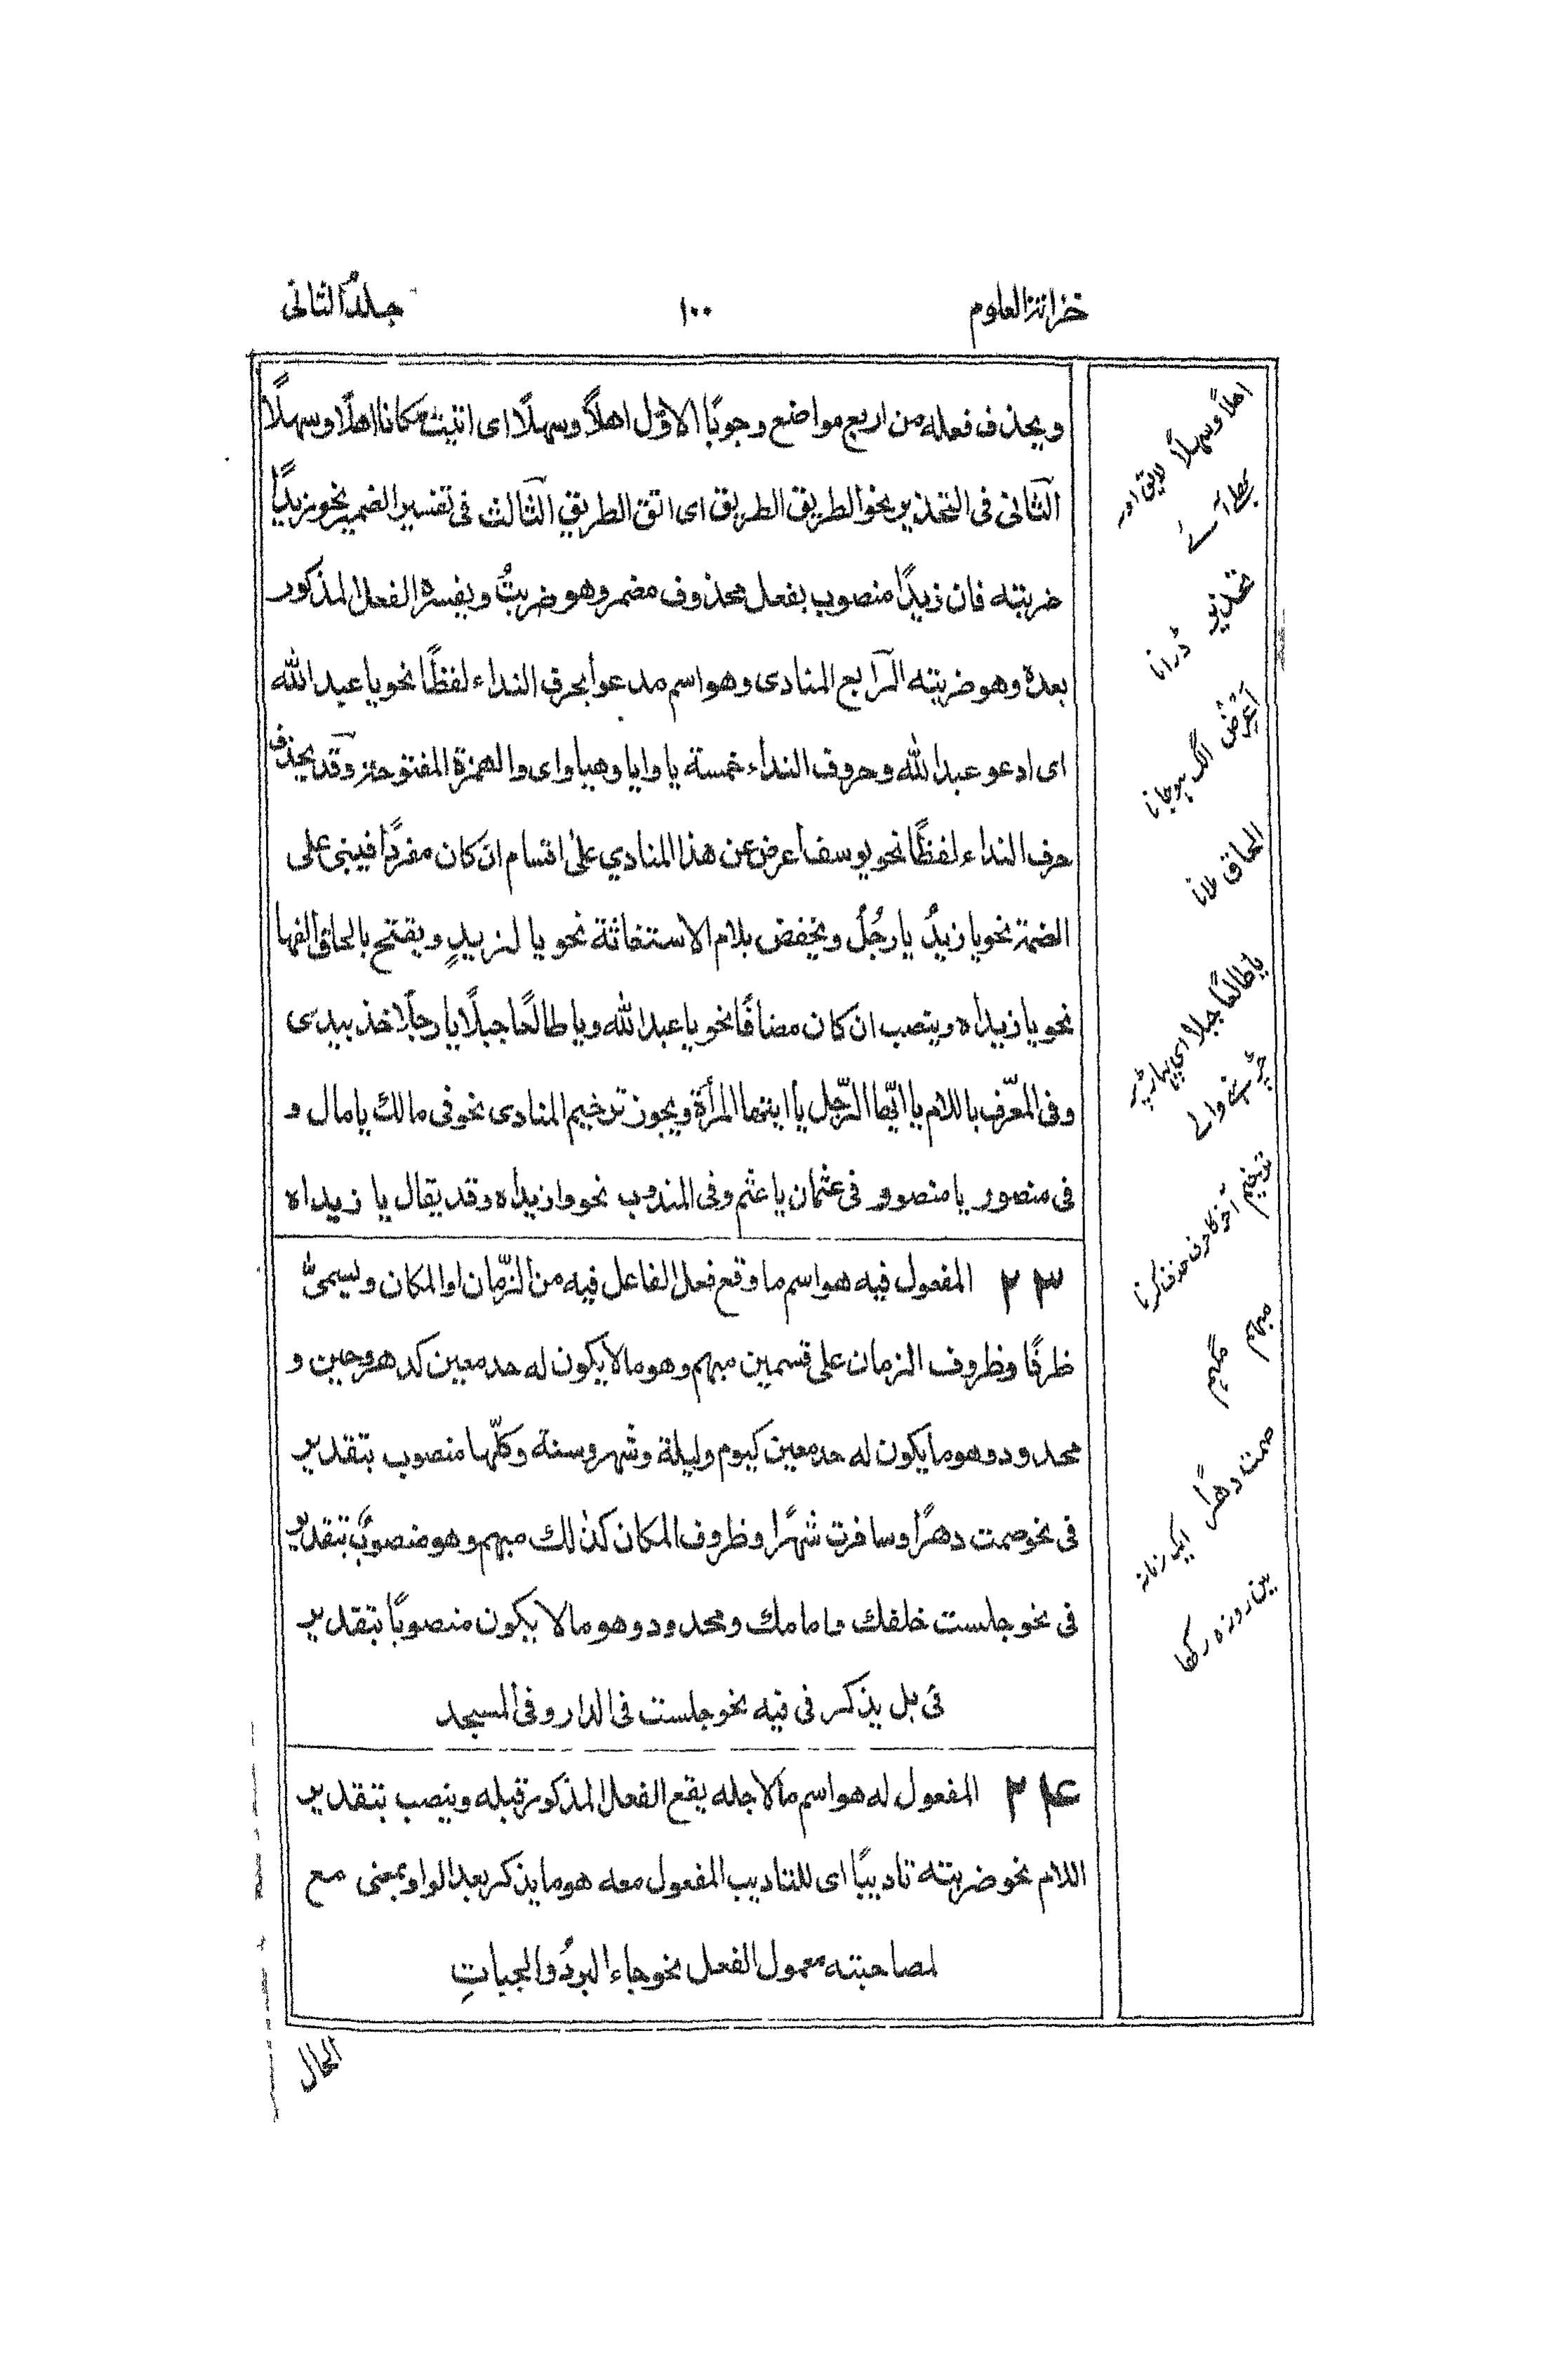 خزانة العلوم
١٠٠
جلدُ الثانى
ويحذف فعله من اربع مواضع وجوبًا الاوّل اهلاً وسهلًا اى اتيت مكانا اهلًا وسهلًا
الثانى فى التحذير نحو الطريق الطريق اى اتق الطريق الثالث فى تفسير الضمير نحو زيدًا
ضربته فان زيدًا منصوب بفعل محذوف مضمر وهو ضربتُ ويفسره الفعل المذكور
بعدهٗ وهو ضربته الرابع المنادى وهو اسم مدعوا بحرف النداء لفظًا نحو يا عبد الله
اى ادعو عبد الله وحروف النداء خمسة يا وايا وهيا واى والهمزة المفتوحة وقد يحذف
حرف النداء لفظًا نحو يوسف اعرض عن هذا المنادي على اقسام ان كان مفردًا فيبنى على
الضمة نحو يا زيدُ يا رجُلُ ويخفض بلام الاستغاثة نحو يا لزيدٍ ويفتح بالحاق الفها
نحو يا زيداه وينصب ان كان مضافًا نحو يا عبد الله ويا طالعًا جبلًا يا رجلًا خذ بيدى
وفى المعّرف باللام يا ايّها الرّجل يا ايتها المرأة ويجوز ترخيم المنادى نحو فى مالك يا مال و
فى منصور يا منصو و فى عثمان يا عثم وفى المندوب نحو وا زيداه وقد يقال يا زيداه
٢٣ المفعول فيه هو اسم ما وقع فعل الفاعل فيه من الزّمان او المكان ويسمىٰ
ظرفًا وظروف الزمان على قسمين مبهم وهو ما لا يكون له حد معين كدهر وحين و
محدود وهو ما يكون له حد معين كيوم وليلة وشهر وسنة وكلّها منصوب بتقدير
فى نحو صمت دهرًا وسافرت شهرًا وظروف المكان كذلك مبهم وهو منصوبٌ بتقدير
فى نحو جلست خلفك وامامك ومحدود وهو ما لا يكون منصوبًا بتقدير
فى بل يذكر فى فيه نحو جلست فى الدار وفى المسجد
٢٤ المفعول له هو اسم ما لاجله يقع الفعل المذكور قبله وينصب بتقدير
اللام نحو ضربته تاديبًا اى للتاديب المفعول معه هو ما يذكر بعد الواو بمعنى مع
لمصاحبته معمول الفعل نحو جاء البردُ والجباتِ
اهلاً وسهلاً لايق اور
بھلا آئے
تحذير ڈرانا
اَعْرِضْ الگ ہوجانا
الحاق ملانا
يا طالعًا جبلا اى پہاڑ پر
چڑھنے والے
ترخيم آخر کا حرف حذف کرنا
مبهم
صمت دهرًا ایک زمانہ
میں روزہ رکھا
الحال